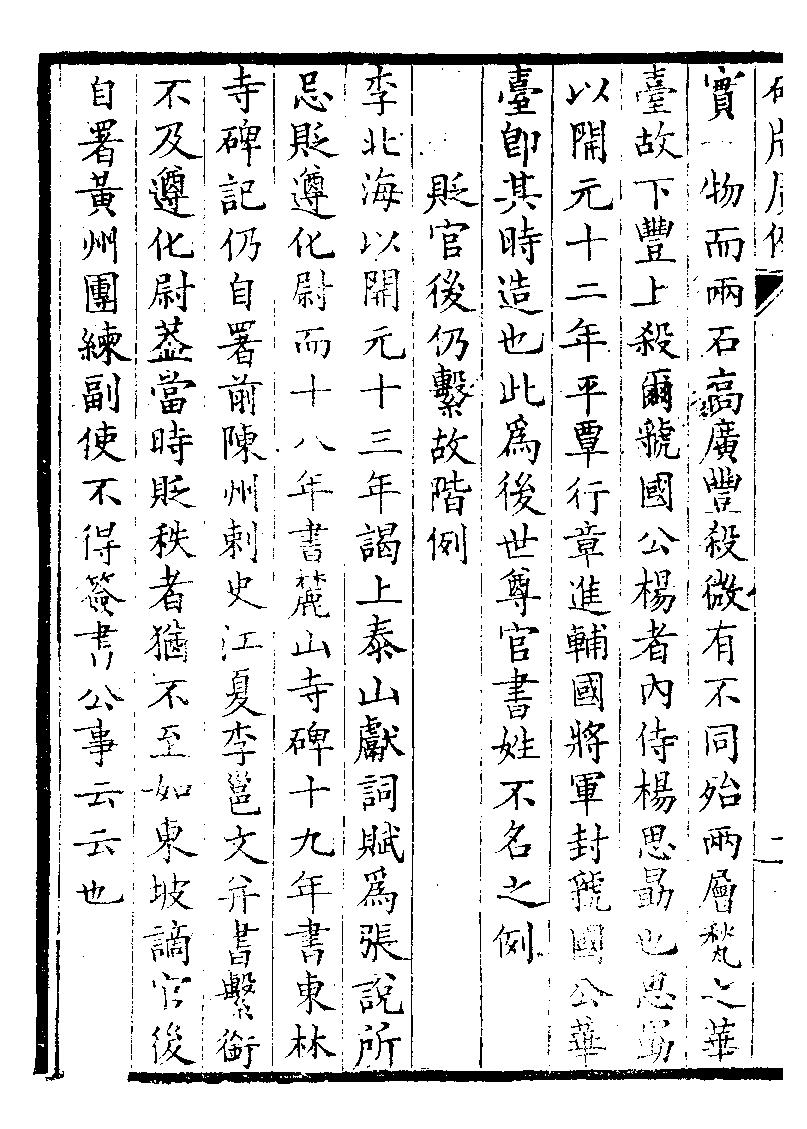 碑版廣例
二
實一物而兩石高廣豐殺微有不同殆兩層甃之華
臺故下豐上殺爾虢國公楊者內侍楊思勗也思勗
以開元十二年平覃行章進輔國將軍封虢國公華
臺即其時造也此為後世尊官書姓不名之例
貶官後仍繫故階例
李北海以開元十三年謁上泰山獻詞賦為張說所
忌貶遵化尉而十八年書麓山寺碑十九年書東林
寺碑記仍自署前陳州刺史江夏李邕文并書繫銜
不及遵化尉葢當時貶秩者猶不至如東坡謫官後
自署黃州團練副使不得簽書公事云云也